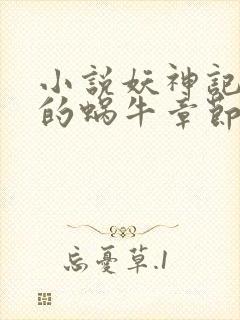 小説妖神記
的蝸牛章節
忘憂草.1